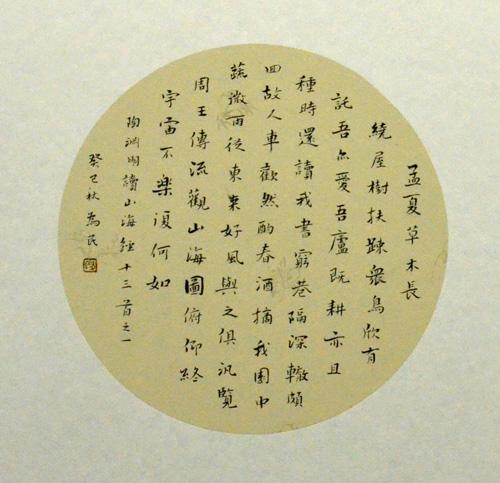 孟夏草木長
繞屋樹扶踈衆鳥欣有
託吾亦愛吾廬既耕亦且
種時還讀我書窮巷隔深轍頗
回故人車歡然酌春酒摘我園中
蔬微雨從東來好風與之俱汎覽
周王傳流觀山海圖俯仰終
宇宙不樂復何如
陶淵明讀山海經十三首之一
癸巳秋為民